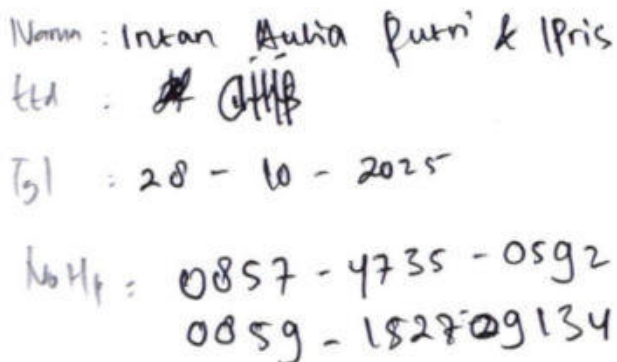 Nama : Intan Aulia Putri & Ipris
ttd :
Tgl : 28 - 10 - 2025
No Hp : 0857 - 4735 - 0592
0859 - 1527 09134